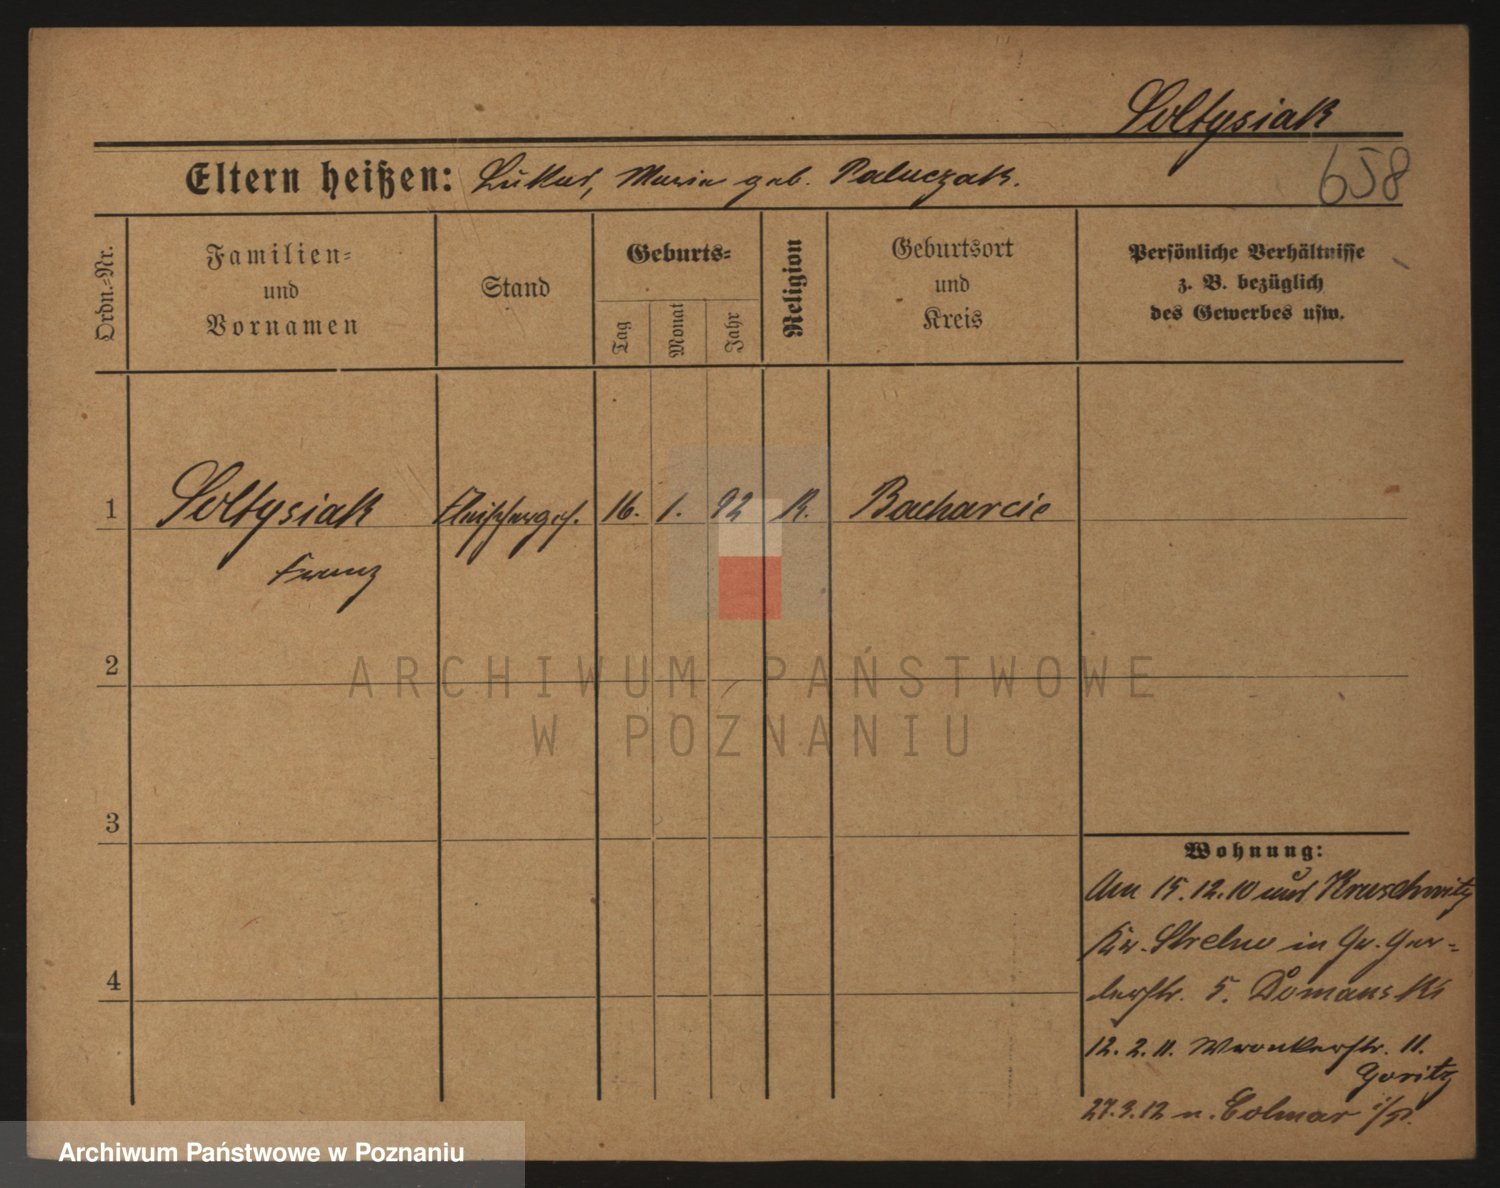 Soltysiak
658
Eltern heißen: Lukas, Maria geb. Paluczak.
Ordn.-Nr.
Familien- und Vornamen
Stand
Geburts-
Tag
Monat
Jahr
Religion
Geburtsort und Kreis
Persönliche Verhältnisse
z. B. bezüglich
des Gewerbes usw.
1 Soltysiak Fleischerges. 16. 1. 92 K. Bacharcie
Franz
2
ARCHIWUM PAŃSTWOWE
W POZNANIU
3
Wohnung:
Am 15.12.10 aus Kruschwitz
Kr. Strelno in Gr. Ger-
berstr. 5. Domanski
4
12.2.11. Wronkerstr. 11.
Goritz
27.3.12 n. Colmar i/P.
Archiwum Państwowe w Poznaniu